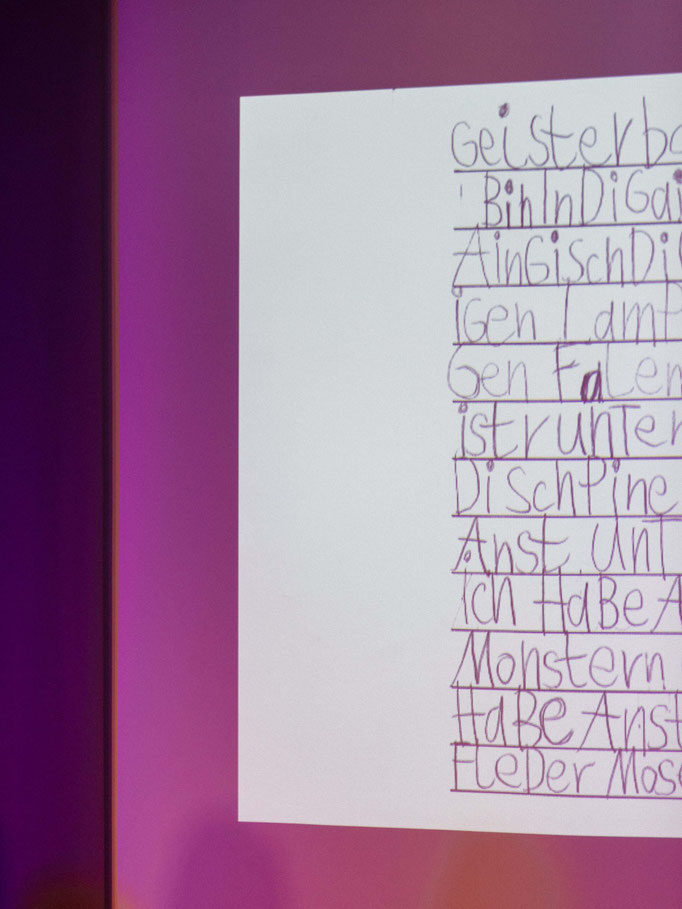 Geisterba
BinInDiGai
AinGischDi
iGen Lamp
Gen FaLen
istrunter
DiSchPine
Anst. Unt
Ich HaBe A
Monstern
HaBe Anst
FLeDer Mos